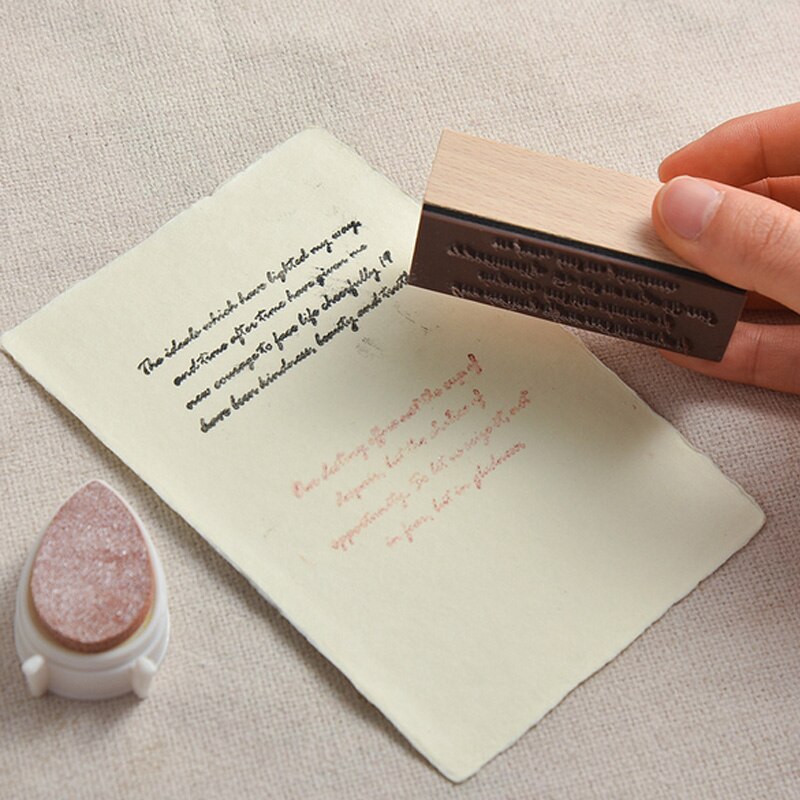 The ideals which have lighted my way,
and time after time have given me
new courage to face life cheerfully, 19
have been kindness, beauty, and truth
Our destiny offers not the cup of
despair, but the chalice of
opportunity. So let us seize it, not
in fear, but in gladness